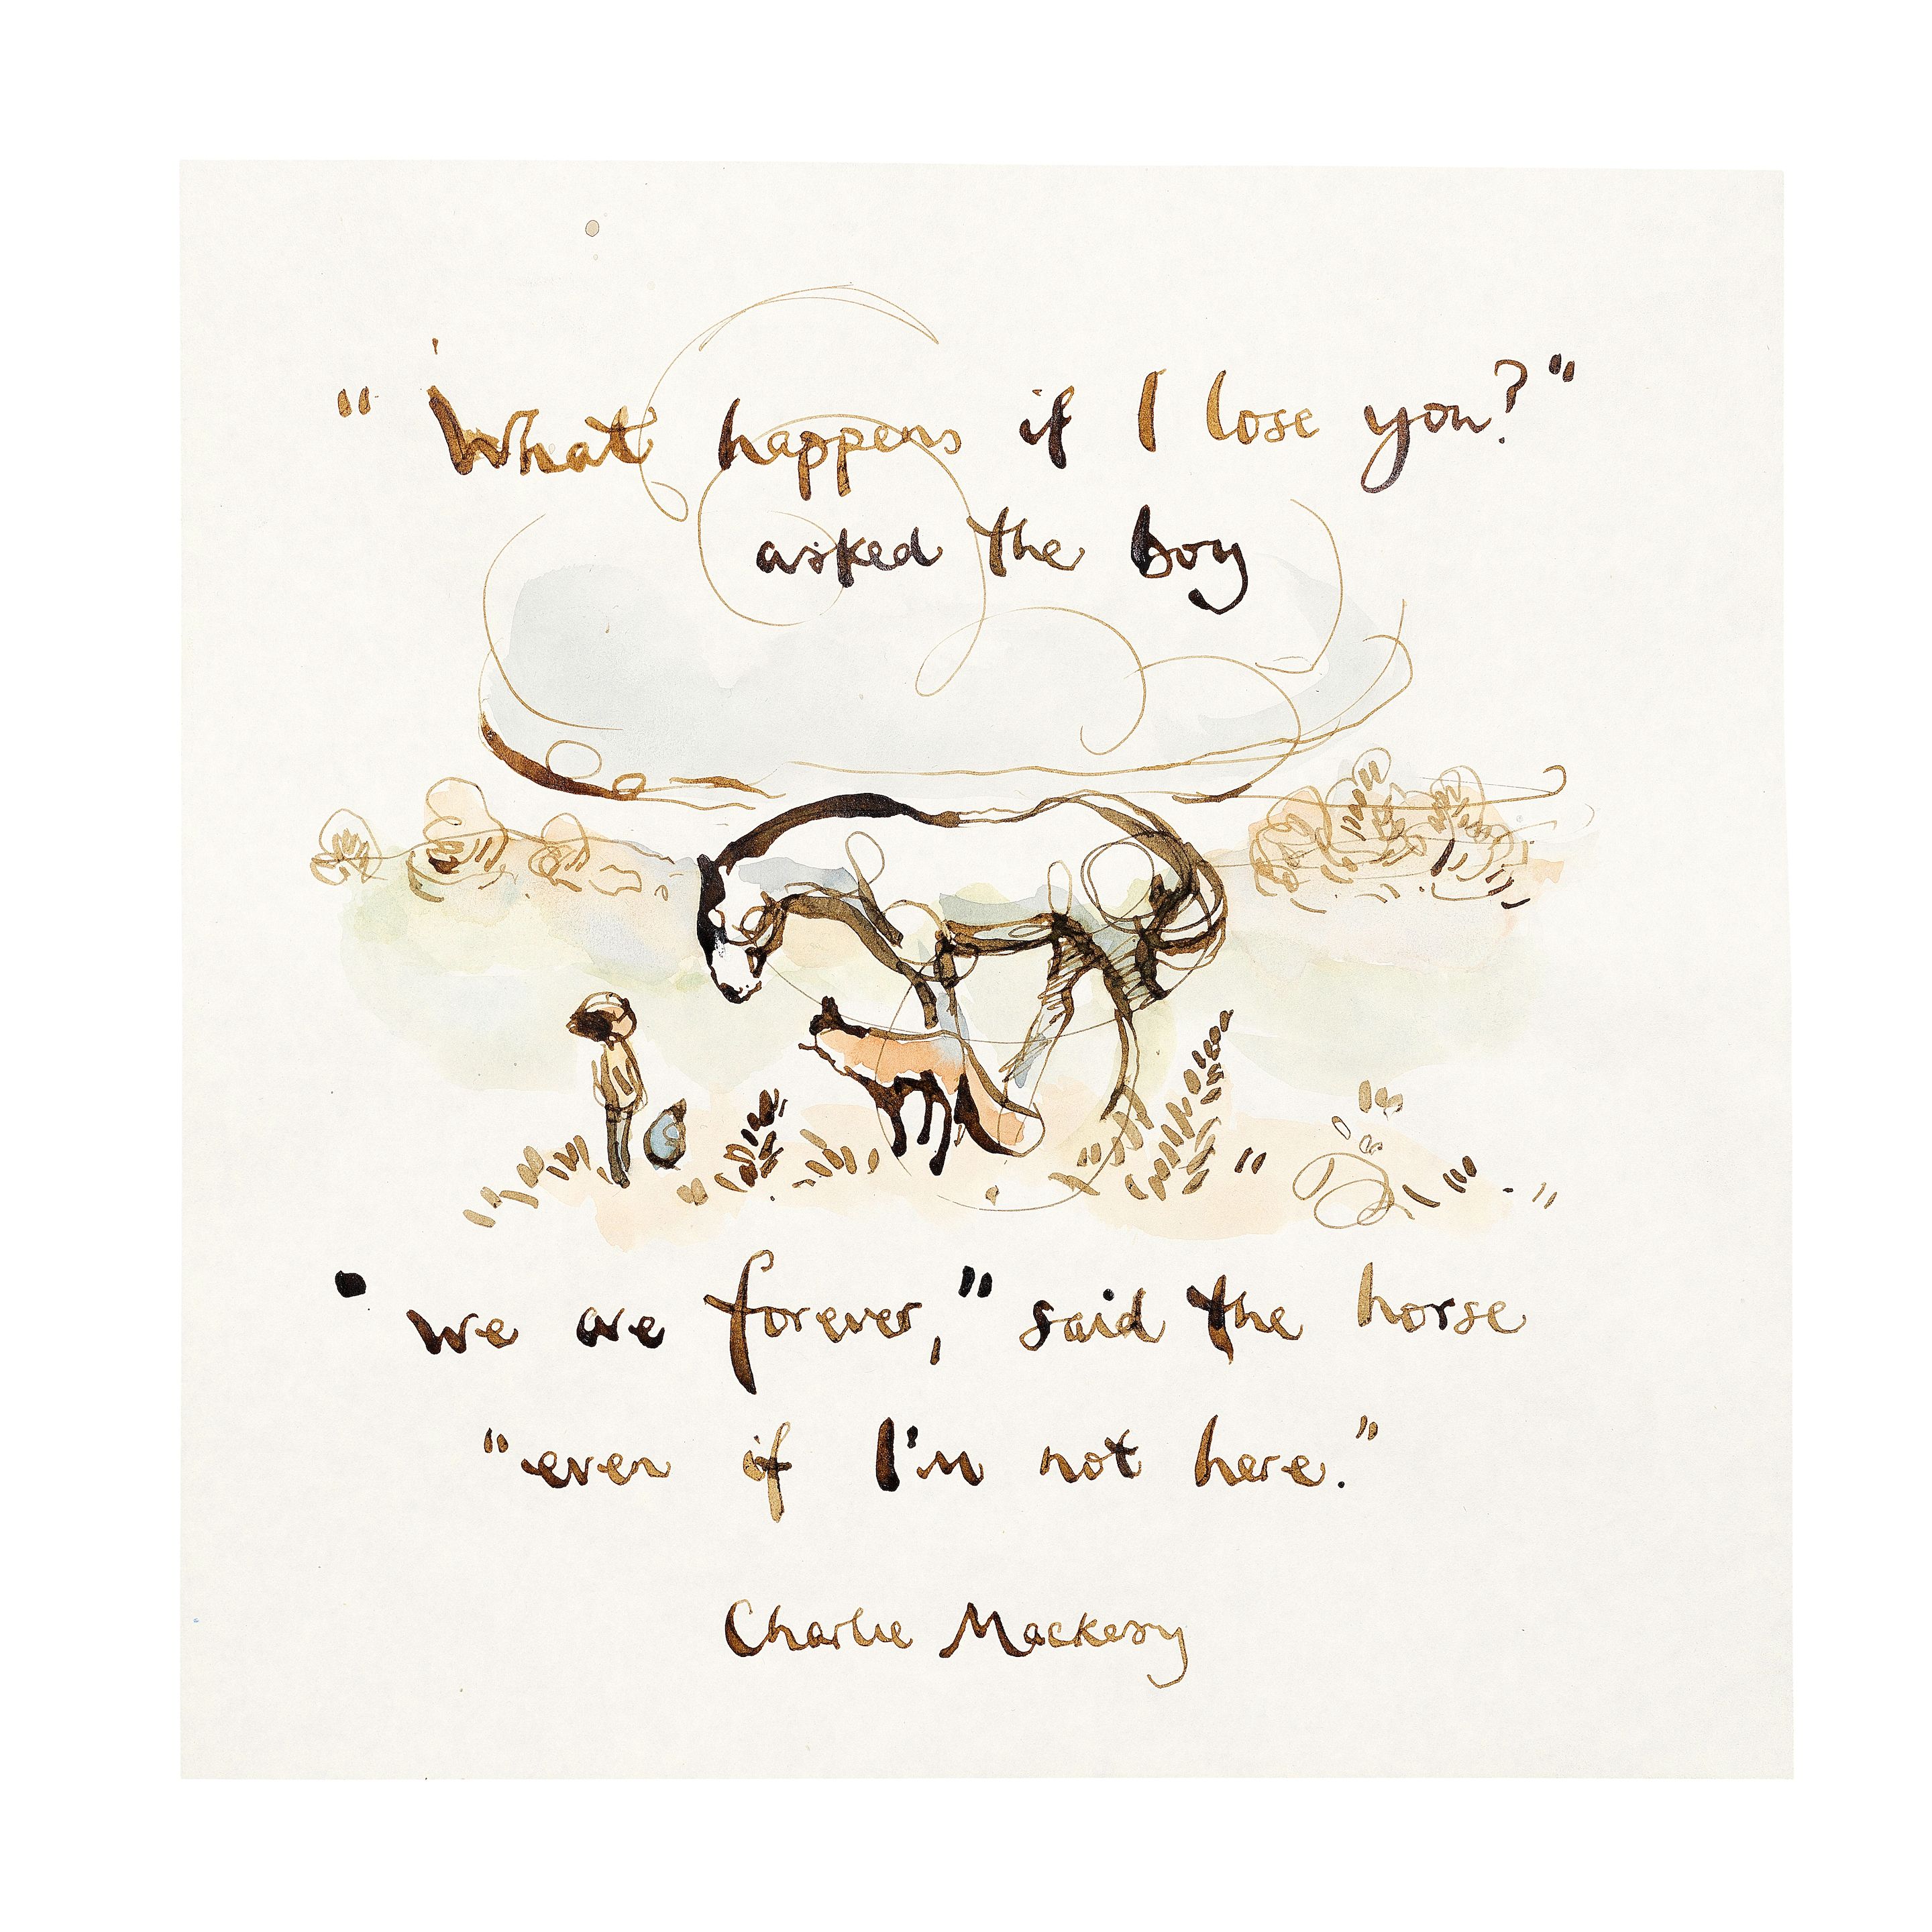 "What happens if I lose you?"
asked the boy
"we are forever," said the horse
"even if I'm not here."
Charlie Mackesy